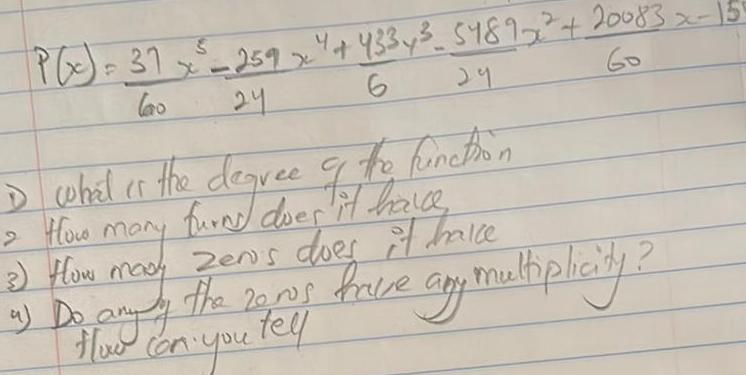 P(x) = 37/60 x^5 - 259/24 x^4 + 433/6 x^3 - 5489/24 x^2 + 20083/60 x - 15
1) What is the degree of the function
2 How many turns does it have
3) How many zeros does it have
4) Do any of the zeros have any multiplicity?
How can you tell